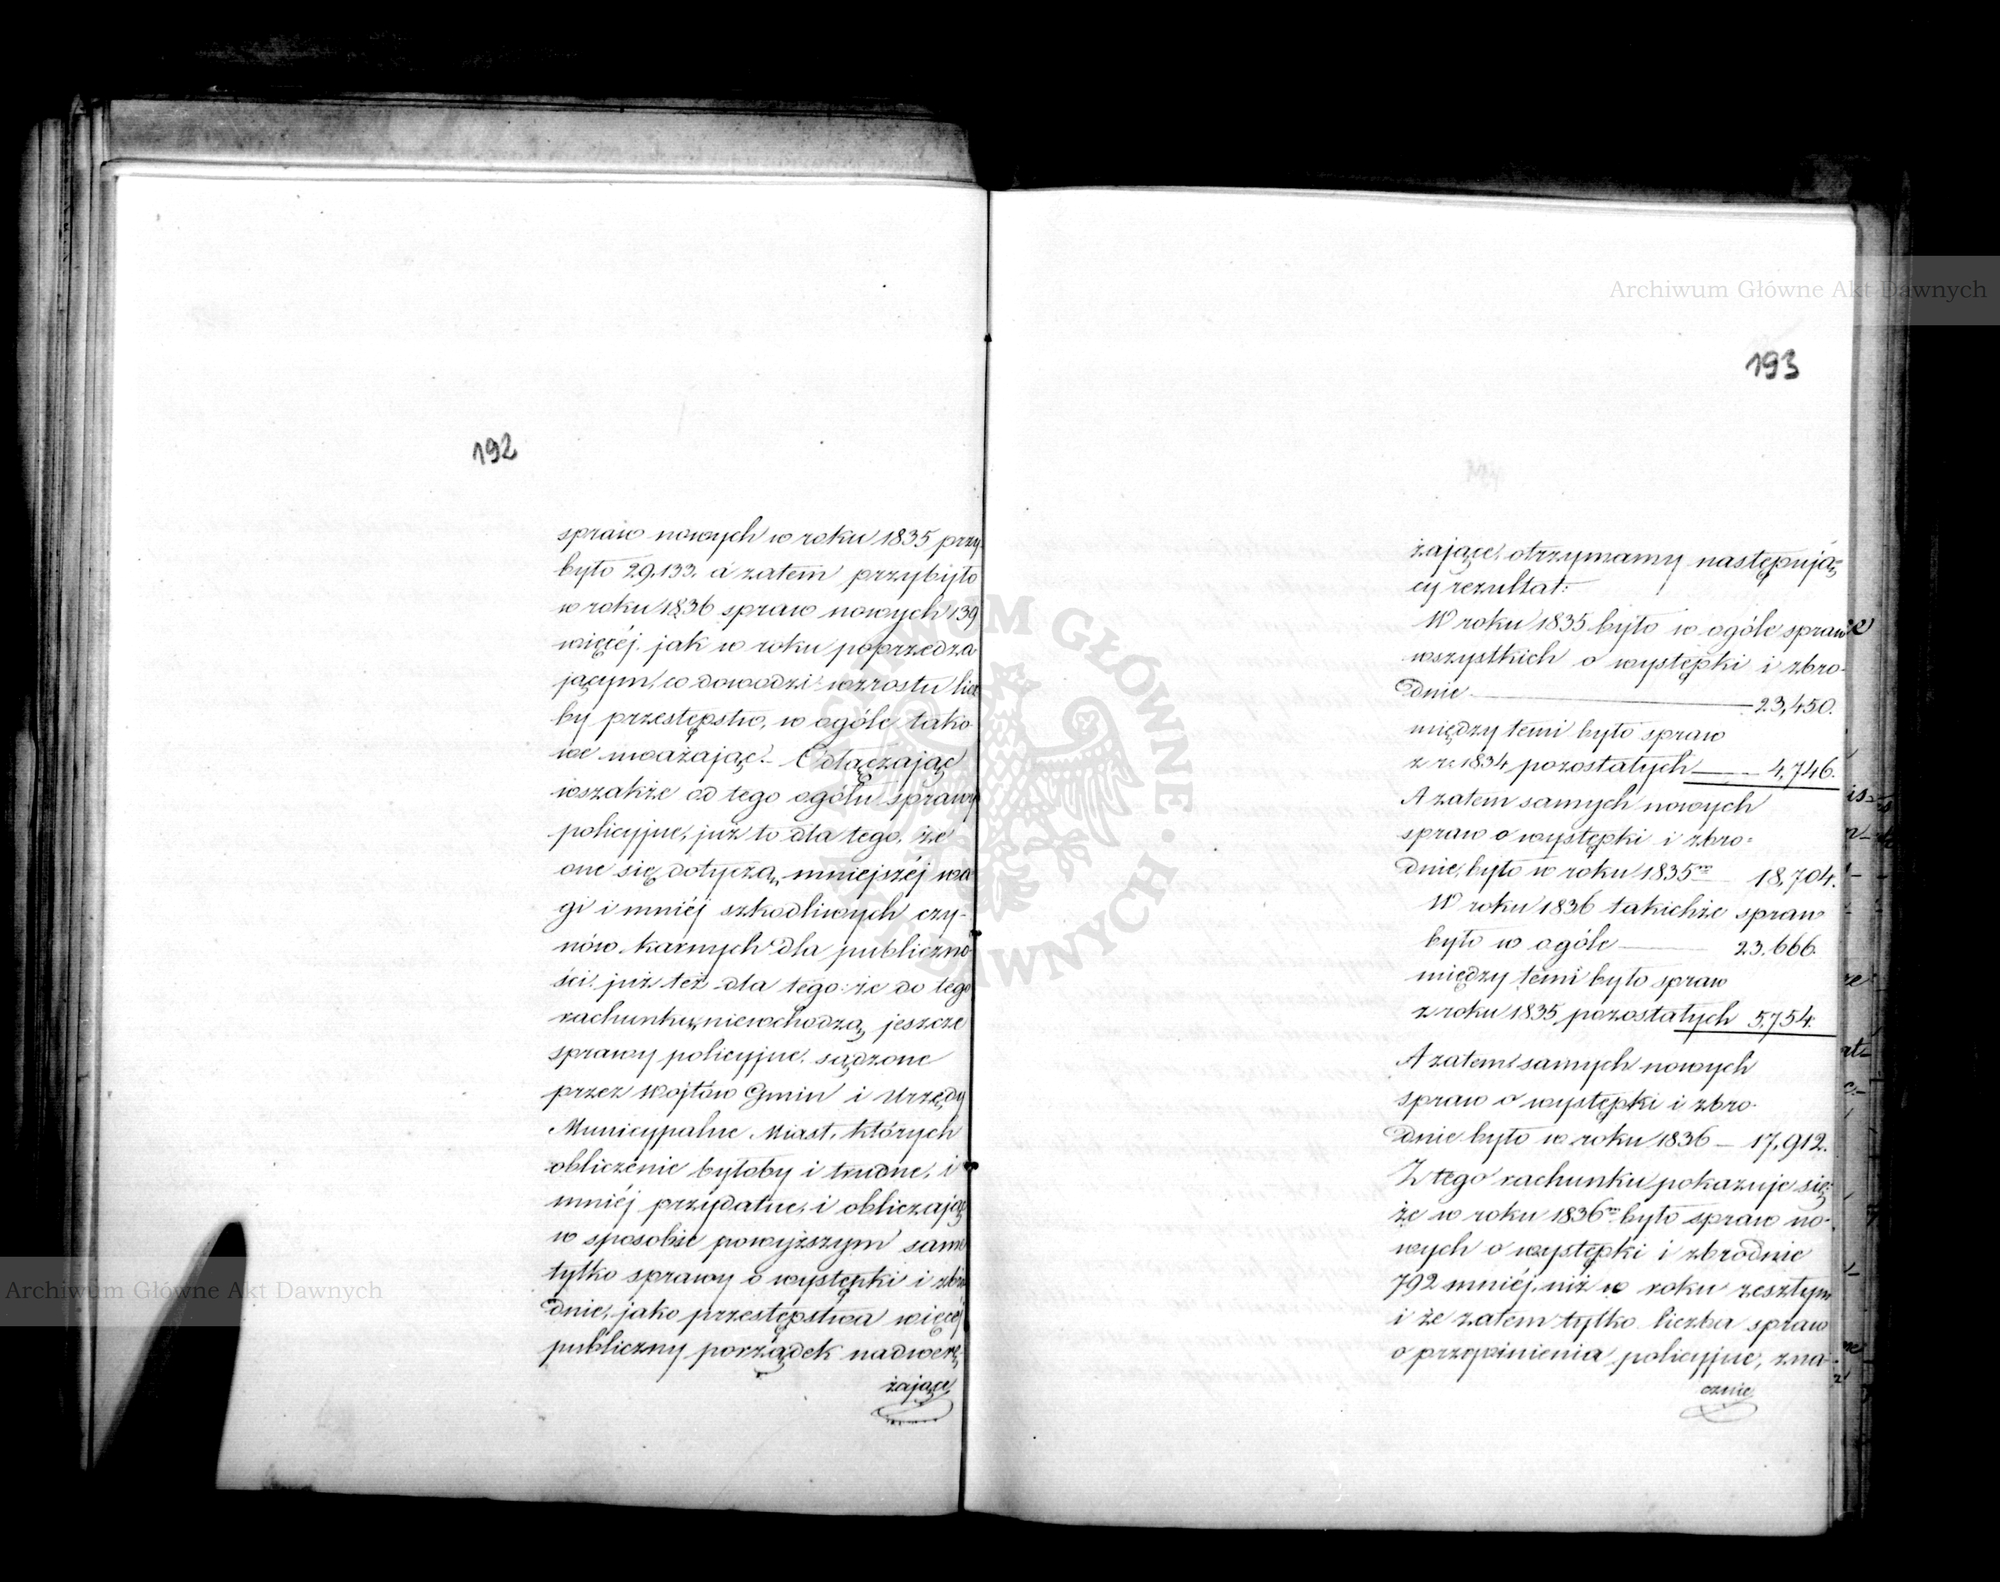 192
spraw nowych w roku 1835 przy
było 29.133. a zatem przybyło
w roku 1836 spraw nowych 139
więcéj jak w roku poprzedza
jącym, co dowodzi wzrostu licz
by przestępstw, w ogóle tako
we uważając.– Odłączając
wszakże od tego ogółu sprawy
policyjne, już to dla tego, że
one się dotyczą, mniejszéj wa
gi i mniéj szkodliwych czy-
nów karnych dla publiczno
ści, już też dla tego: że do tego
rachunku, niewchodzą jeszcze
sprawy policyjne, sądzone
przez Wojtów Gmin i Urzędy
Municypalne Miast, których
obliczenie byłoby i trudne, i
mniéj przydatne, i obliczając
w sposobie powyższym same
tylko sprawy o występki i zbro
dnie, jako przestępstwa więcéj
publiczny porządek nadwerę
żające
193
żające, otrzymamy następują
cy rezultat:
W roku 1835 było w ogóle spraw
wszystkich o występki i zbro-
dnie 23,450.
między temi było spraw
z r. 1834 pozostałych 4,746.
A zatem samych nowych
spraw o występki i zbro-
dnie, było w roku 1835 18,704.
W roku 1836 takichże spraw
było w ogóle 23.666.
między temi było spraw
z roku 1835 pozostałych 5,754.
A zatem samych nowych
spraw o występki i zbro-
dnie było w roku 1836 – 17,912.
Z tego rachunku pokazuje się:
że w roku 1836 było spraw no-
wych o występki i zbrodnie
792 mniéj, niż w roku zeszłym
i że zatem tylko liczba spraw
o przewinienia policyjne, zna-
cznie
Archiwum Główne Akt Dawnych
Archiwum Główne Akt Dawnych
ARCHIWUM GŁÓWNE AKT DAWNYCH